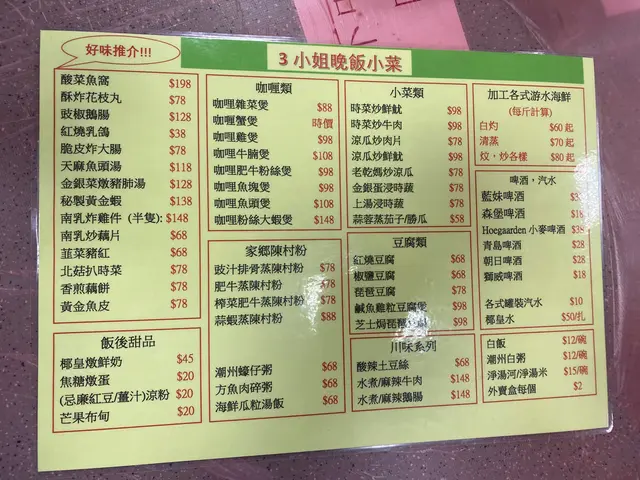 好味推介!!!
3 小姐晚飯小菜
酸菜魚窩 $198
酥炸花枝丸 $78
豉椒鵝腸 $128
紅燒乳鴿 $38
脆皮炸大腸 $78
天麻魚頭湯 $118
金銀菜燉豬肺湯 $128
秘製黃金蝦 $138
南乳炸雞件 (半隻): $148
南乳炒藕片 $68
韮菜豬紅 $68
北菇扒時菜 $78
香煎藕餅 $78
黃金魚皮 $78
飯後甜品
椰皇燉鮮奶 $45
焦糖燉蛋 $20
(忌廉紅豆/薑汁)涼粉 $20
芒果布甸 $20
咖喱類
咖喱雜菜煲 $88
咖喱蟹煲 時價
咖喱雞煲 $98
咖喱牛腩煲 $108
咖喱肥牛粉絲煲 $98
咖喱魚塊煲 $98
咖喱魚頭煲 $108
咖喱粉絲大蝦煲 $148
家鄉陳村粉
豉汁排骨蒸陳村粉 $78
肥牛蒸陳村粉 $78
榨菜肥牛蒸陳村粉 $78
蒜蝦蒸陳村粉 $88
潮州蠔仔粥 $68
方魚肉碎粥 $68
海鮮瓜粒湯飯 $68
小菜類
時菜炒鮮魷 $98
時菜炒牛肉 $98
涼瓜炒肉片 $78
涼瓜炒鮮魷 $98
老乾媽炒涼瓜 $78
金銀蛋浸時蔬 $78
上湯浸時蔬 $78
蒜蓉蒸茄子/勝瓜 $58
豆腐類
紅燒豆腐 $68
椒鹽豆腐 $68
琵琶豆腐 $78
鹹魚雞粒豆腐煲 $98
芝士焗琵琶 $98
川味系列
酸辣土豆絲 $68
水煮/麻辣牛肉 $148
水煮/麻辣鵝腸 $148
加工各式游水海鮮
(每斤計算)
白灼 $60 起
清蒸 $70 起
炆，炒各樣 $80 起
啤酒，汽水
藍妹啤酒
森堡啤酒 $18
Hoegaarden 小麥啤酒 $38
青島啤酒 $28
朝日啤酒 $28
獅威啤酒 $18
各式罐裝汽水 $10
椰皇水 $50/扎
白飯 $12/碗
潮州白粥 $12/碗
淨湯河/淨湯米 $15/碗
外賣盒每個 $2